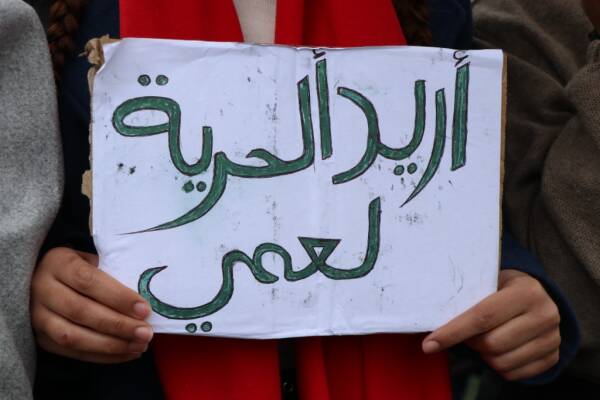 أريد ألحرية
لعمي